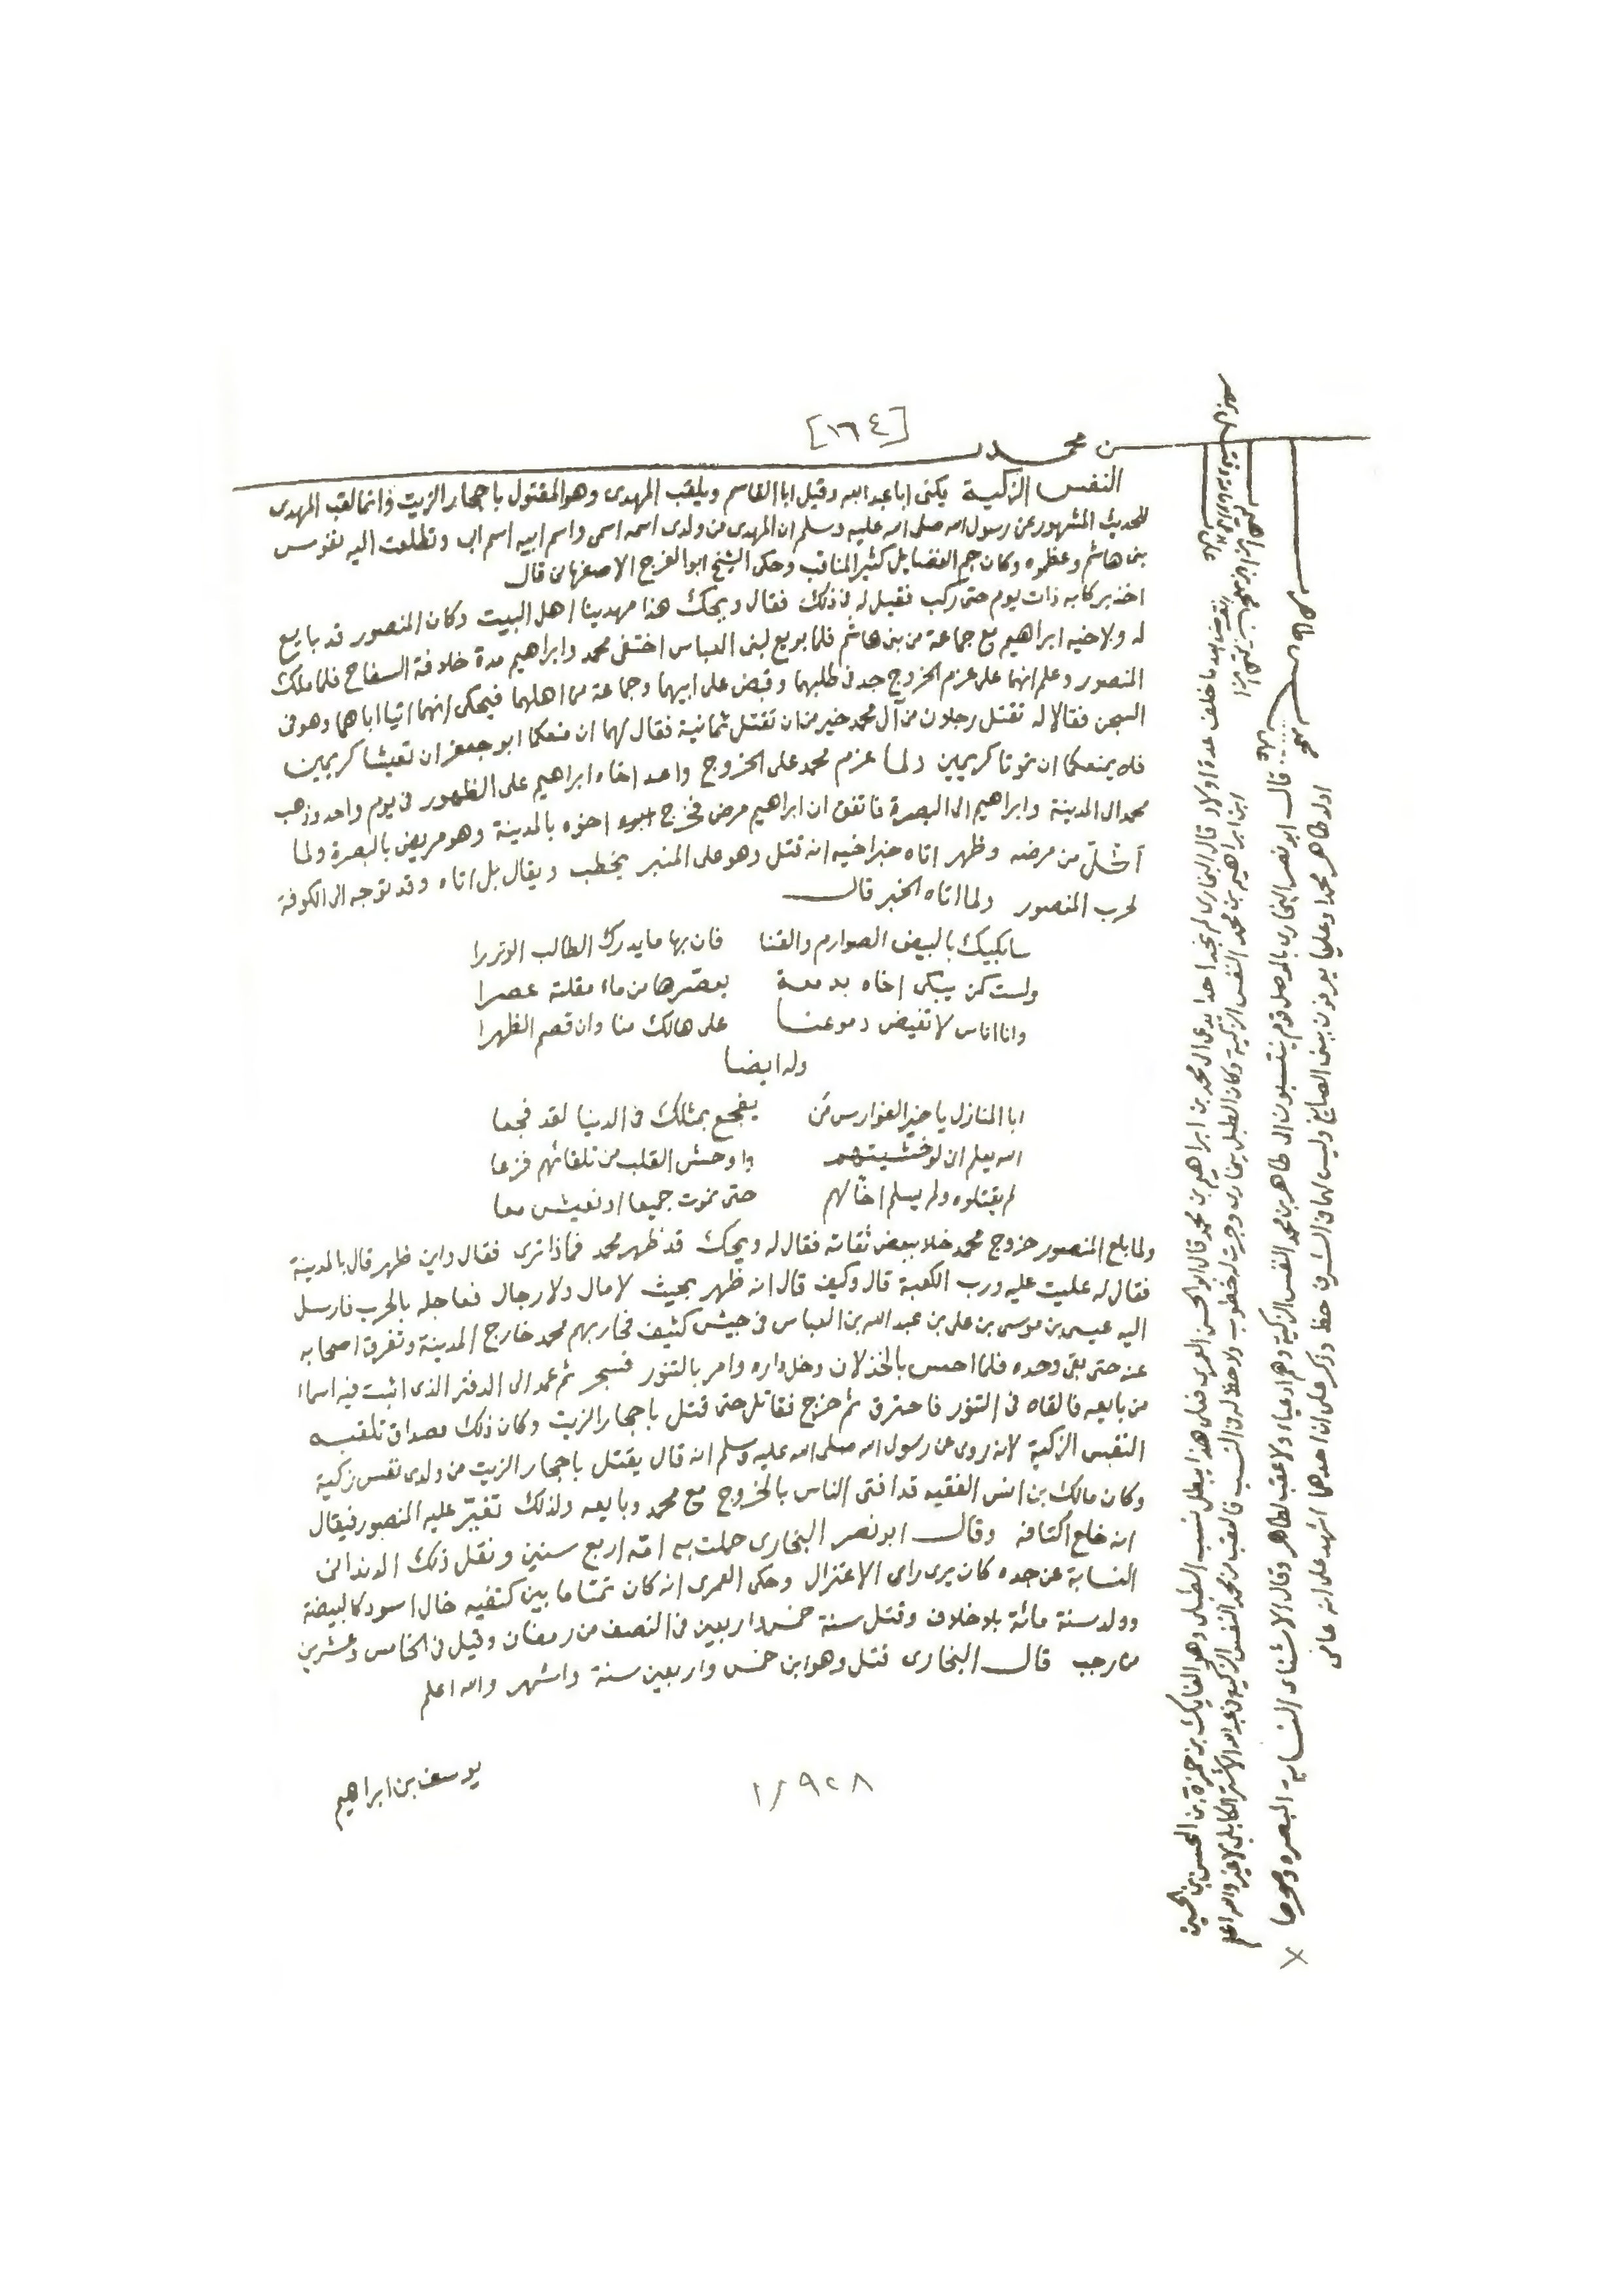 [١٦٤]
بن محمد
النفس الزكية يكنى ابا عبد الله وقيل ابا القاسم ويلقب المهدى وهو المقتول باحجار الزيت وانما لقب المهدى
للحديث المشهور عن رسول الله صلى الله عليه وسلم ان المهدى من ولدى اسمه اسمى واسم ابيه اسم ابى وتطلعت اليه نفوس
بنى هاشم وعظموه وكان جم الفضايل كثير المناقب وحكى الشيخ ابو الفرج الاصفهانى قال
اخذ بركابه ذات يوم حتى ركب فقيل له فى ذلك فقال ويحك هذا مهدينا اهل البيت وكان المنصور قد بايع
له ولاخيه ابراهيم مع جماعة من بنى هاشم فلما بويع لبنى العباس اختفى محمد وابراهيم مدة خلافة السفاح فلما ملك
المنصور وعلم انهما على عزم الخروج جد فى طلبهما وقبض على ابيهما وجماعة من اهلهما فيحكى انهما اتيا اباهما وهو فى
السجن فقالا له نقتل رجلان من آل محمد خير من ان تقتل ثمانية فقال لهما ان منعكما ابو جعفر ان تعيشا كريمين
فلا يمنعكما ان تموتا كريمين ولما عزم محمد على الخروج واعد اخاه ابراهيم على الظهور فى يوم واحد وذهب
محمد الى المدينة وابراهيم الى البصرة فاتفق ان ابراهيم مرض فخرج اخوه بالمدينة وهو مريض بالبصرة ولما
من مرضه وظهر اتاه خبر اخيه انه قتل وهو على المنبر يخطب ويقال بل اتاه وقد توجه الى الكوفة
لحرب المنصور ولما اتاه الخبر قال
سابكيك بالبيض الصوارم والقنا فان بها ما يدرك الطالب الوترا
ولست كمن يبكى اخاه بدمعة يعصرها من ماء مقلته عصرا
وانا اناس لا تفيض دموعنا على هالك منا وان قصم الظهرا
وله ايضا
ابا المنازل يا خير الفوارس من يفجع بمثلك فى الدنيا لقد فجعا
الله يعلم ان لو خشيتهم واوحش القلب من تلقائهم فزعا
لم يقتلوه ولم يسلم اخالهم حتى نموت جميعا او نعيش معا
ولما بلغ المنصور خروج محمد خلا ببعض ثقاته فقال له ويحك قد ظهر محمد فماذا ترى فقال واين ظهر قال بالمدينة
فقال له عليت عليه ورب الكعبة قال وكيف قال انه ظهر بحيث لا مال ولا رجال فعاجله بالحرب فارسل
اليه عيسى بن موسى بن على بن عبد الله بن العباس فى جيش كثيف فحاربهم محمد خارج المدينة وتفرق اصحابه
عنه حتى بقى وحده فلما احس بالخذلان دخل داره وامر بالتنور فسجر ثم عمد الى الدفتر الذى اثبت فيه اسماء
من بايعه فالقاه فى التنور فاحترق ثم خرج فقاتل حتى قتل باحجار الزيت وكان ذلك مصداق تلقيبه
النفس الزكية لانه روى عن رسول الله صلى الله عليه وسلم انه قال يقتل باحجار الزيت من ولدى نفس زكية
وكان مالك بن انس الفقيه قد افتى الناس بالخروج مع محمد وبايعه ولذلك تغير عليه المنصور فيقال
انه خلع اكتافه وقال ابو نصر البخارى حملت به امه اربع سنين ونقل ذلك الدندانى
النسابة عن جده كان يرى راى الاعتزال وحكى العمرى انه كان تمتاما بين كتفيه خال اسود كالبيضة
وولد سنة مائة بلا خلاف وقتل سنة خمس واربعين فى النصف من رمضان وقيل فى الخامس وعشرين
من رجب قال البخارى قتل وهو ابن خمس واربعين سنة واشهر والله اعلم
يوسف بن ابراهيم
١٩٢٨
قال ابو نصر البخارى بالموصل قوم ينتسبون الى طاهر بن محمد النفس الزكية وهم ادعياء ولا عقب لطاهر وقال الاشنانى النسابة البصرى
اولد طاهر محمدا وعليا يعرفون ببنى الصايغ وليس لهما فى الشرف حظ
ابن ابراهيم بن محمد النفس الزكية وكان الطبل بخارى وجرت له خطوب ولا حظ له فى النسب فالعقب من محمد النفس الزكية فى عبد الله الاشتر الكابلى لا غير والله اعلم
خلف عدة اولاد قال البخارى لم نجد احدا يدعى الى محمد بن ابراهيم بن محمد قال ابو الحسن العمرى فعلى هذا يبطل نسب